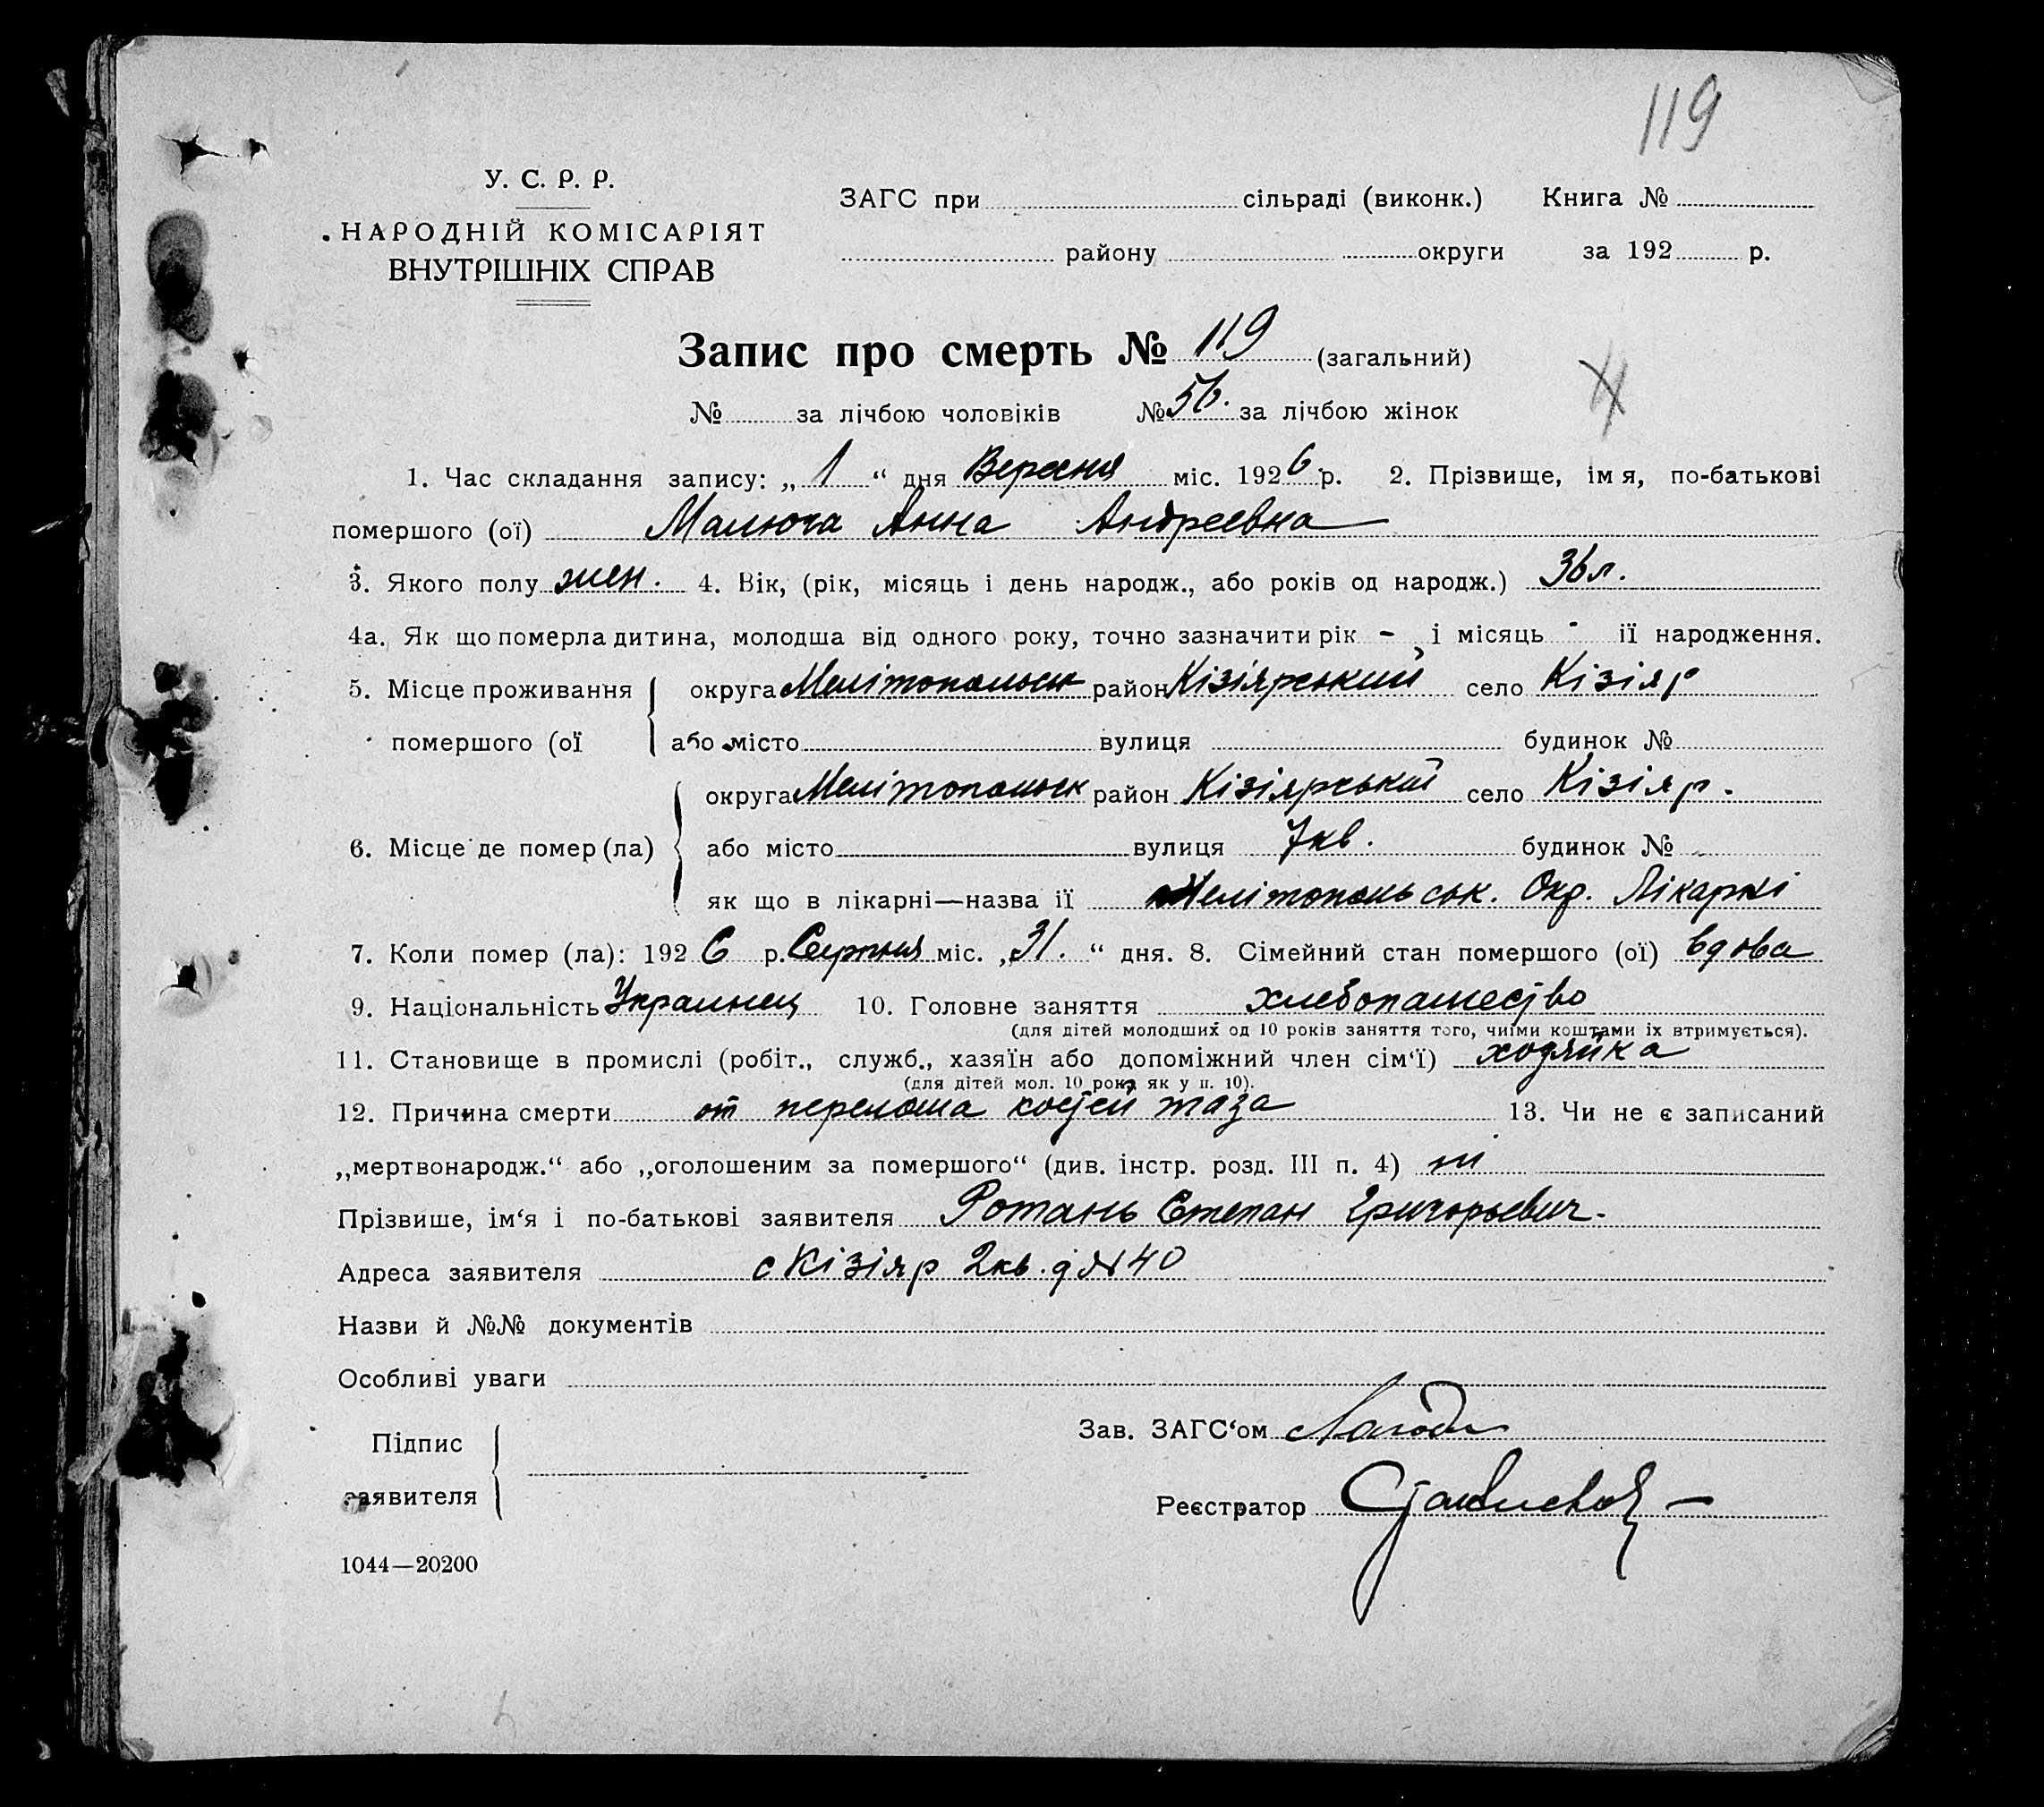 119
У. С. Р. Р.
НАРОДНІЙ КОМІСАРІЯТ
ВНУТРІШНІХ СПРАВ
ЗАГС при сільраді (виконк.) Книга №
району округи за 192 р.
Запис про смерть № 119 (загальний)
№ за лічбою чоловіків № 56. за лічбою жінок
1. Час складання запису: „ 1 “ дня Вересня міс. 1926 р. 2. Прізвище, імя, по-батькові
помершого (ої) Малюга Анна Андреевна
3. Якого полу жен. 4. Вік, (рік, місяць і день народж., або років од народж.) 36 л.
4а. Як що померла дитина, молодша від одного року, точно зазначити рік - і місяць - її народження.
5. Місце проживання округа Мелітопольськ район Кізіярський село Кізіяр
помершого (ої або місто вулиця будинок №
округа Мелітопольськ район Кізіярський село Кізіяр.
6. Місце де помер (ла) або місто вулиця 7 кв. будинок №
як що в лікарні—назва її Мелітопольськ. Окр. Лікарні
7. Коли помер (ла): 1926 р. Серпня міс. „31. “ дня. 8. Сімейний стан помершого (ої) вдова
9. Національність Украинец 10. Головне заняття хлебопашество
(для дітей молодших од 10 років заняття того, чиїми коштами іх втримується).
11. Становище в промислі (робіт., служб., хазяїн або допоміжний член сім‘ї) ходяйка
(для дітей мол. 10 років як у п. 10).
12. Причина смерти от перелома костей таза 13. Чи не є записаний
„мертвонародж.“ або „оголошеним за помершого“ (див. інстр. розд. III п. 4) ні
Прізвише, ім‘я і по-батькові заявителя Ротань Степан Григорьевич.
Адреса заявителя с Кізіяр 2 кв. д № 40
Назви й №№ документів
Особливі уваги
Підпис
заявителя
Зав. ЗАГС‘ом
Реєстратор
1044—20200